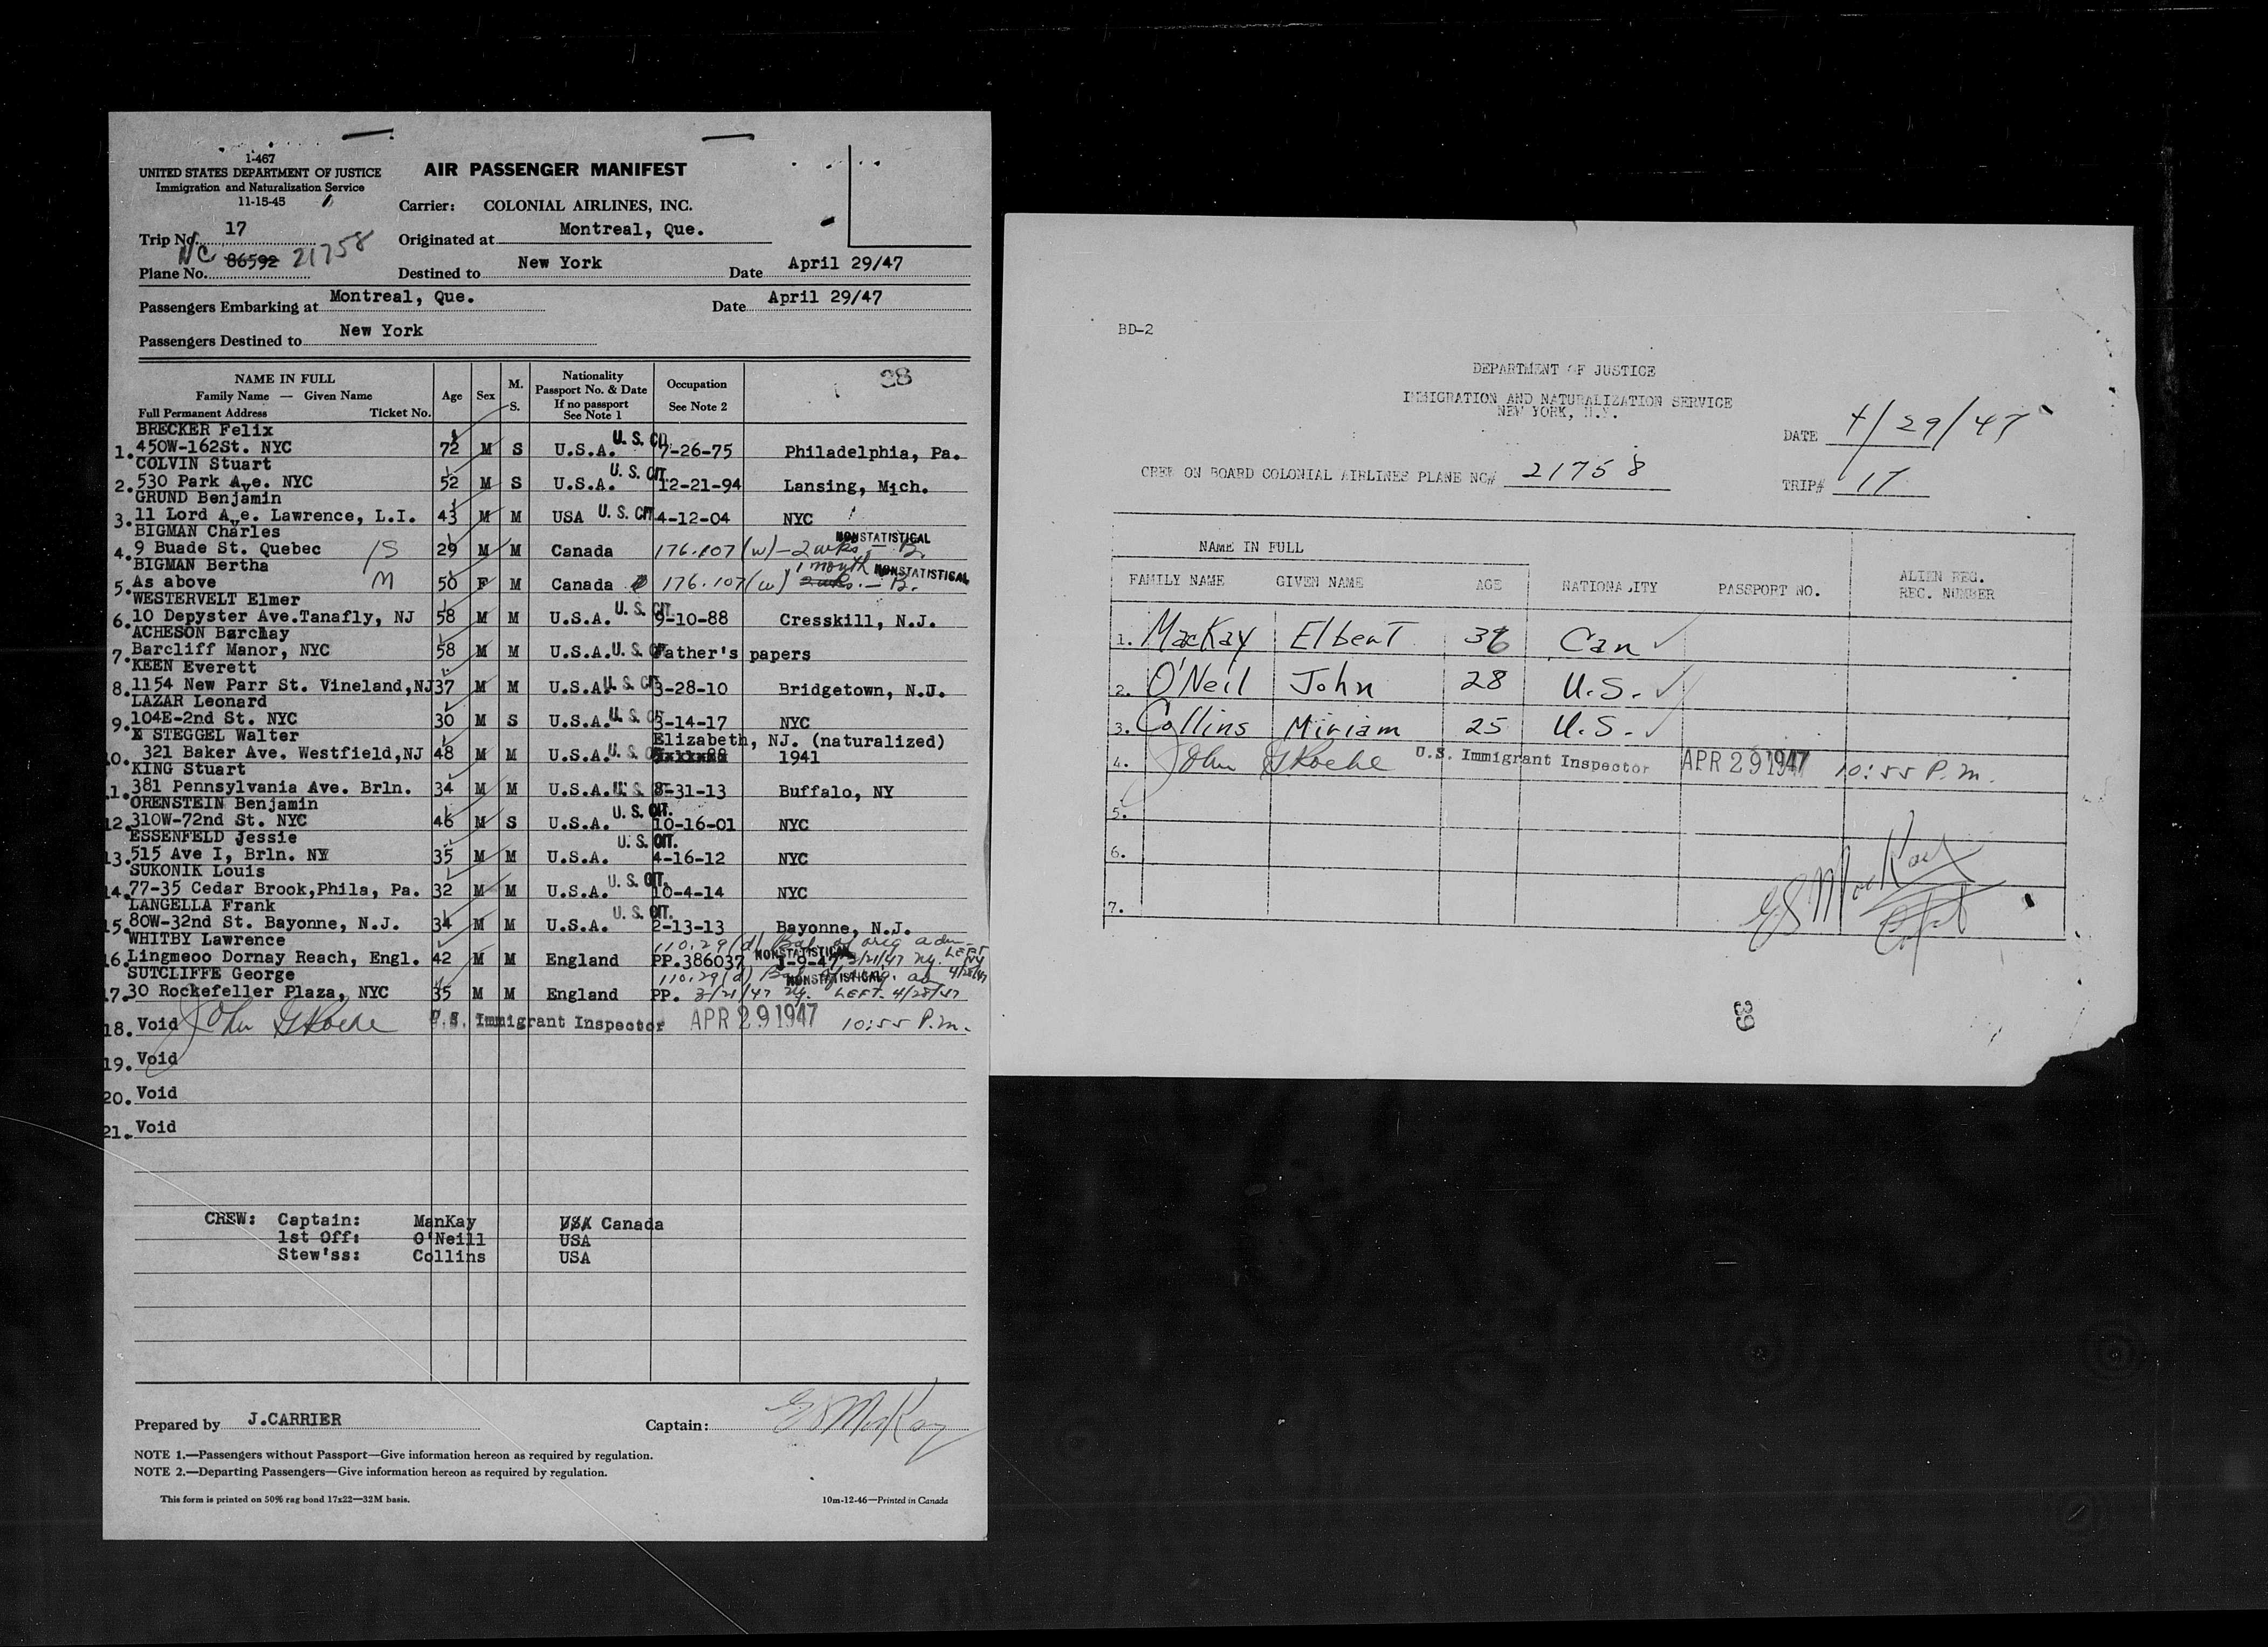 1-467
UNITED STATES DEPARTMENT OF JUSTICE
Immigration and Naturalization Service
11-15-45
AIR PASSENGER MANIFEST
Carrier: COLONIAL AIRLINES, INC.
Trip No. 17
Originated at Montreal, Que.
Plane No. NC 86592 21758
Destined to New York Date April 29/47
Passengers Embarking at Montreal, Que. Date April 29/47
Passengers Destined to New York
38
NAME IN FULL
Family Name — Given Name
Full Permanent Address Ticket No.
Age
Sex
M.
S.
Nationality
Passport No. & Date
If no passport
See Note 1
Occupation
See Note 2
BRECKER Felix
1. 450W-162St. NYC 72 M S U.S.A. U. S. CIT. 7-26-75 Philadelphia, Pa.
COLVIN Stuart
2. 530 Park Ave. NYC 52 M S U.S.A. U. S. CIT. 12-21-94 Lansing, Mich.
GRUND Benjamin
3. 11 Lord Ave. Lawrence, L.I. 43 M M USA U. S. CIT 4-12-04 NYC
BIGMAN Charles
4. 9 Buade St. Quebec /S 29 M M Canada 176.107(w) - 2 wks - B. NONSTATISTICAL
BIGMAN Bertha
5. As above M 50 F M Canada 176.107(w) 2 wks. 1 month - B. NONSTATISTICAL
WESTERVELT Elmer
6. 10 Depyster Ave.Tanafly, NJ 58 M M U.S.A. U. S. CIT. 9-10-88 Cresskill, N.J.
ACHESON Barclay
7. Barcliff Manor, NYC 58 M M U.S.A. U. S. CIT Father's papers
KEEN Everett
8. 1154 New Parr St. Vineland,NJ 37 M M U.S.A. U. S. CIT 3-28-10 Bridgetown, N.J.
LAZAR Leonard
9. 104E-2nd St. NYC 30 M S U.S.A. U. S. CIT 3-14-17 NYC
STEGGEL Walter Elizabeth, NJ. (naturalized)
10. 321 Baker Ave. Westfield,NJ 48 M M U.S.A. U. S. 1941
KING Stuart
11. 381 Pennsylvania Ave. Brln. 34 M M U.S.A. U. S. 8-31-13 Buffalo, NY
ORENSTEIN Benjamin
12. 310W-72nd St. NYC 46 M S U.S.A. U. S. CIT. 10-16-01 NYC
ESSENFELD Jessie
13. 515 Ave I, Brln. NY 35 M M U.S.A. U. S. CIT. 4-16-12 NYC
SUKONIK Louis
14. 77-35 Cedar Brook,Phila, Pa. 32 M M U.S.A. U. S. CIT. 10-4-14 NYC
LANGELLA Frank
15. 80W-32nd St. Bayonne, N.J. 34 M M U.S.A. U. S. CIT. 2-13-13 Bayonne, N.J.
WHITBY Lawrence 110.29(d) Bal of orig adm-
16. Lingmeoo Dornay Reach, Engl. 42 M M England PP.386037 NONSTATISTICAL 1-9-47 3/21/47 Ny. LEFT NY 4/28/47
SUTCLIFFE George 110.29(d) Bal of orig. ad NONSTATISTICAL
17. 30 Rockefeller Plaza, NYC 35 M M England PP. 3/21/47 Ny. LEFT. 4/28/47
18. Void John U.S. Immigrant Inspector APR 29 1947 10:55 P.m.
19. Void
20. Void
21. Void
CREW: Captain: ManKay USA Canada
1st Off: O'Neill USA
Stew'ss: Collins USA
Prepared by J.CARRIER Captain: E S MacKay
NOTE 1.—Passengers without Passport—Give information hereon as required by regulation.
NOTE 2.—Departing Passengers—Give information hereon as required by regulation.
This form is printed on 50% rag bond 17x22—32M basis. 10m-12-46—Printed in Canada
BD-2
DEPARTMENT OF JUSTICE
IMMIGRATION AND NATURALIZATION SERVICE
NEW YORK, N.Y.
DATE 4/29/47
CREW ON BOARD COLONIAL AIRLINES PLANE NO# 21758
TRIP# 17
NAME IN FULL
FAMILY NAME GIVEN NAME AGE NATIONALITY PASSPORT NO. ALIEN REG. REC. NUMBER
1. MacKay Elbert 36 Can
2. O'Neil John 28 U.S.
3. Collins Miriam 25 U.S.
4. John U.S. Immigrant Inspector APR 29 1947 10:55 P.m.
5.
6.
7.
E S MacKay
Capt
39